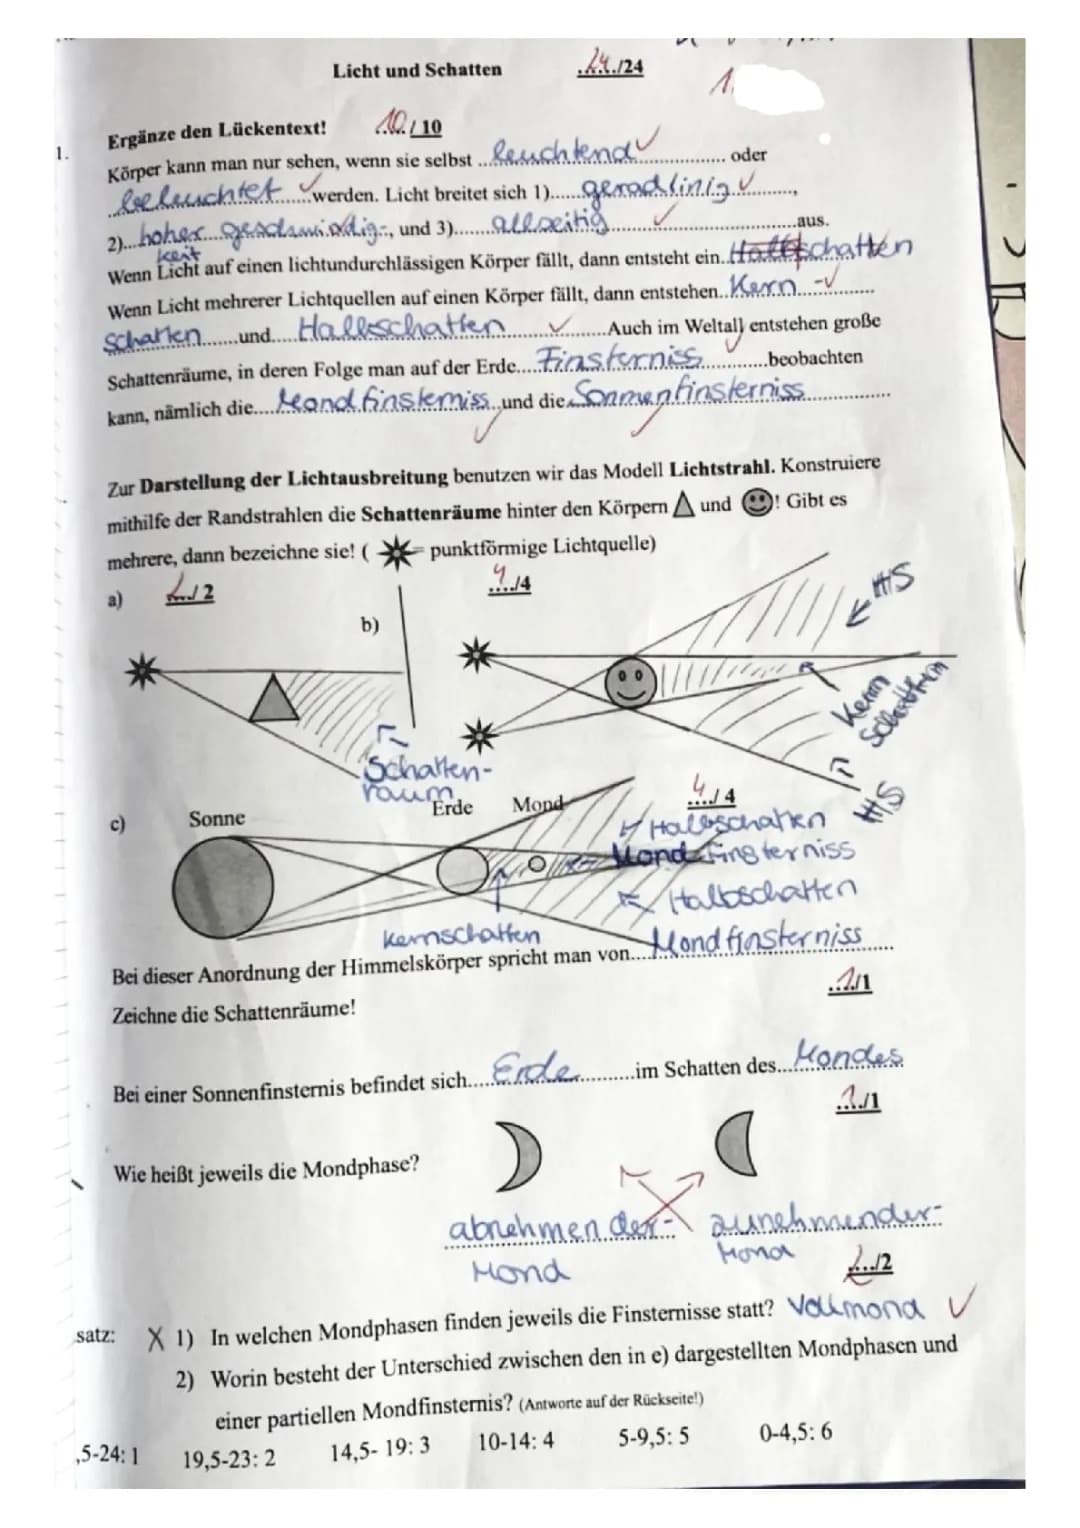 Licht und Schatten 24./24
1.
1. Ergänze den Lückentext! 10/10
Körper kann man nur sehen, wenn sie selbst ..leuchtend.. oder
beleuchtet werden. Licht breitet sich 1)....geradlinig....,
2)..hoher geschwindig-, und 3)....allseitig....aus.
keit
Wenn Licht auf einen lichtundurchlässigen Körper fällt, dann entsteht ein..Halbschatten
Wenn Licht mehrerer Lichtquellen auf einen Körper fällt, dann entstehen..Kern-
schatten...und...Halbschatten...Auch im Weltall entstehen große
Schattenräume, in deren Folge man auf der Erde...Finsterniss...beobachten
kann, nämlich die...Mondfinsterniss..und die..Sonnenfinsterniss
Zur Darstellung der Lichtausbreitung benutzen wir das Modell Lichtstrahl. Konstruiere
mithilfe der Randstrahlen die Schattenräume hinter den Körpern und ! Gibt es
mehrere, dann bezeichne sie! ( = punktförmige Lichtquelle)
a) 2./2 4./4
b)
HS
Kern
schatten
HS
Schatten-
raum
c) Sonne Erde Mond 4./4
Halbschatten
Mondfinsterniss
Halbschatten
kernschatten
Bei dieser Anordnung der Himmelskörper spricht man von....Mondfinsterniss
1/1
Zeichne die Schattenräume!
Bei einer Sonnenfinsternis befindet sich....Erde....im Schatten des...Mondes
1./1
Wie heißt jeweils die Mondphase?
abnehmender- zunehmender-
Mond Mond
2./2
satz: X 1) In welchen Mondphasen finden jeweils die Finsternisse statt? Vollmond
2) Worin besteht der Unterschied zwischen den in e) dargestellten Mondphasen und
einer partiellen Mondfinsternis? (Antworte auf der Rückseite!)
,5-24: 1 19,5-23: 2 14,5- 19: 3 10-14: 4 5-9,5: 5 0-4,5: 6